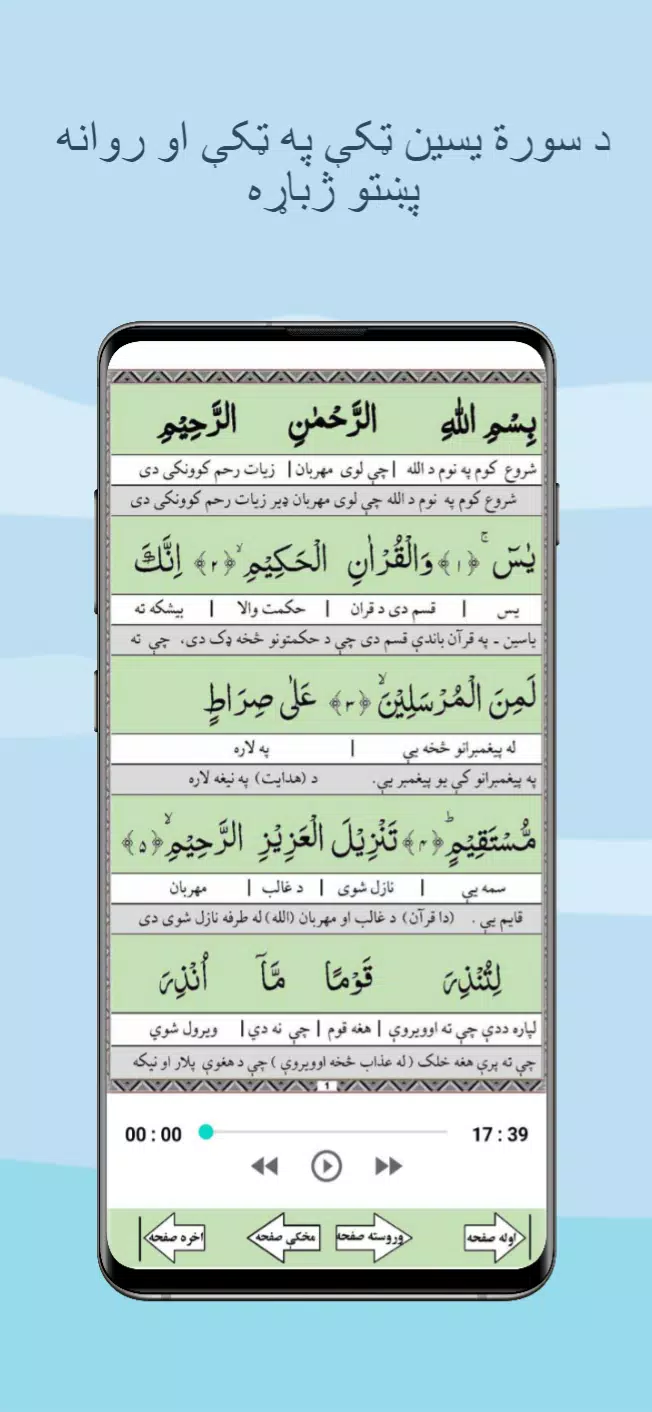 د سورة یسین ټکې په ټکې او روانه
پښتو ژباړه
بِسْمِ اللهِ الرَّحْمٰنِ الرَّحِیْمِ
شروع کوم په نوم د الله | چې لوی مهربان | زیات رحم کوونکی دی
شروع کوم په نوم د الله چې لوی مهربان ډیر زیات رحم کوونکی دی
یٰسٓ ۚ ﴿۱﴾ وَالْقُرْاٰنِ الْحَکِیْمِ ۙ ﴿۲﴾ اِنَّكَ
یس | قسم دی د قران | حکمت والا | بیشکه ته
یاسین ـ په قرآن باندې قسم دی چې د حکمتونو څخه ډک دی، چې ته
لَمِنَ الْمُرْسَلِیْنَ ۙ ﴿۳﴾ عَلٰی صِرَاطٍ
له پیغمبرانو څخه یې | په لاره
په پیغمبرانو کې یو پیغمبر یې. د (هدایت) په نیغه لاره
مُّسْتَقِیْمٍ ؕ ﴿۴﴾ تَنْزِیْلَ الْعَزِیْزِ الرَّحِیْمِ ۙ ﴿۵﴾
سمه یې | نازل شوی | د غالب | مهربان
قایم یې . (دا قرآن) د غالب او مهربان (الله) له طرفه نازل شوی دی
لِتُنْذِرَ قَوْمًا مَّاۤ اُنْذِرَ
لپاره ددې چې ته اوویروې | هغه قوم | چې نه دي | ویرول شوي
چې ته پرې هغه خلک (له عذاب څخه اوویروې ) چې د هغوې پلار او نیکه
1
00 : 00 17 : 39
اوله صفحه وروسته صفحه مخکې صفحه اخره صفحه